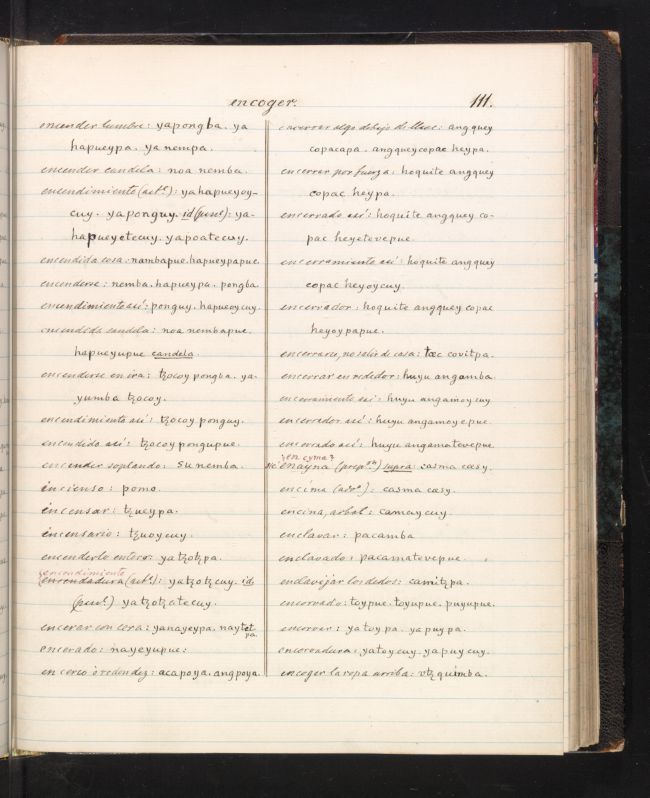 encoger.
111.
encender lumbre: yapongba. ya
hapueypa. ya nempa.
encender candela: noa nemba.
encendimiento (act.º): yahapueyoy-
cuy. yaponguy. id (pas.º): ya-
hapueyetecuy. yapoatecuy.
encendida cosa: nambapue. hapueypapue.
encenderse: nemba. hapueypa. pongba.
encendimiento así: ponguy. hapueoycuy.
encendida candela: noa nembapue.
hapueyupue candela.
encenderse en ira: tzocoy pongba. ya-
yumba tzocoy.
encendimiento así: tzocoy ponguy.
encendido así: tzocoy pongupue.
encender soplando: su nemba.
incienso: pomo.
incensar: tzueypa.
incensario: tzuoycuy.
encenderlo entero: yatzotzpa.
¿encendimiento
encendadura (act.º): yatzotzcuy. id
(pas.º) yatzotzatecuy.
encerar con cera: yanayeypa, naytet-
pa.
encerado: nayeyupue:
en cerco ò redondez: acapoya. angpoya.
encerrar algo debajo de llave: angquey
copacapa. angqueycopac heypa.
encerrar por fuerza: hoquite angquey
copac heypa.
encerrado así: hoquite angquey co-
pac heyetevepue.
encerramiento así: hoquite angquey
copac heyoycuy.
encerrador: hoquite angquey copac
heyoypapue.
encerrarse, no salir de casa: tæc covitpa.
encerrar en rededor: huyu angamba.
encerramiento así: huyu angamoycuy
encerrador así: huyu angamoyepue.
encerrado así: huyu angamatevepue
¿en cyma?
sic enayna (prep.ⁿ) supra: casma casy.
encíma (adv.º): casma casy.
encina, arbol: camaycuy.
enclavar: pacamba
enclavado: pacamatevepue.
enclavijar los dedos: camitzpa.
encorvado: toypue. toyupue. puyupue.
encorver: yatoypa. yapuypa.
encorvadura: yatoycuy. yapuycuy.
encoger la ropa arriba: vtzquimba.